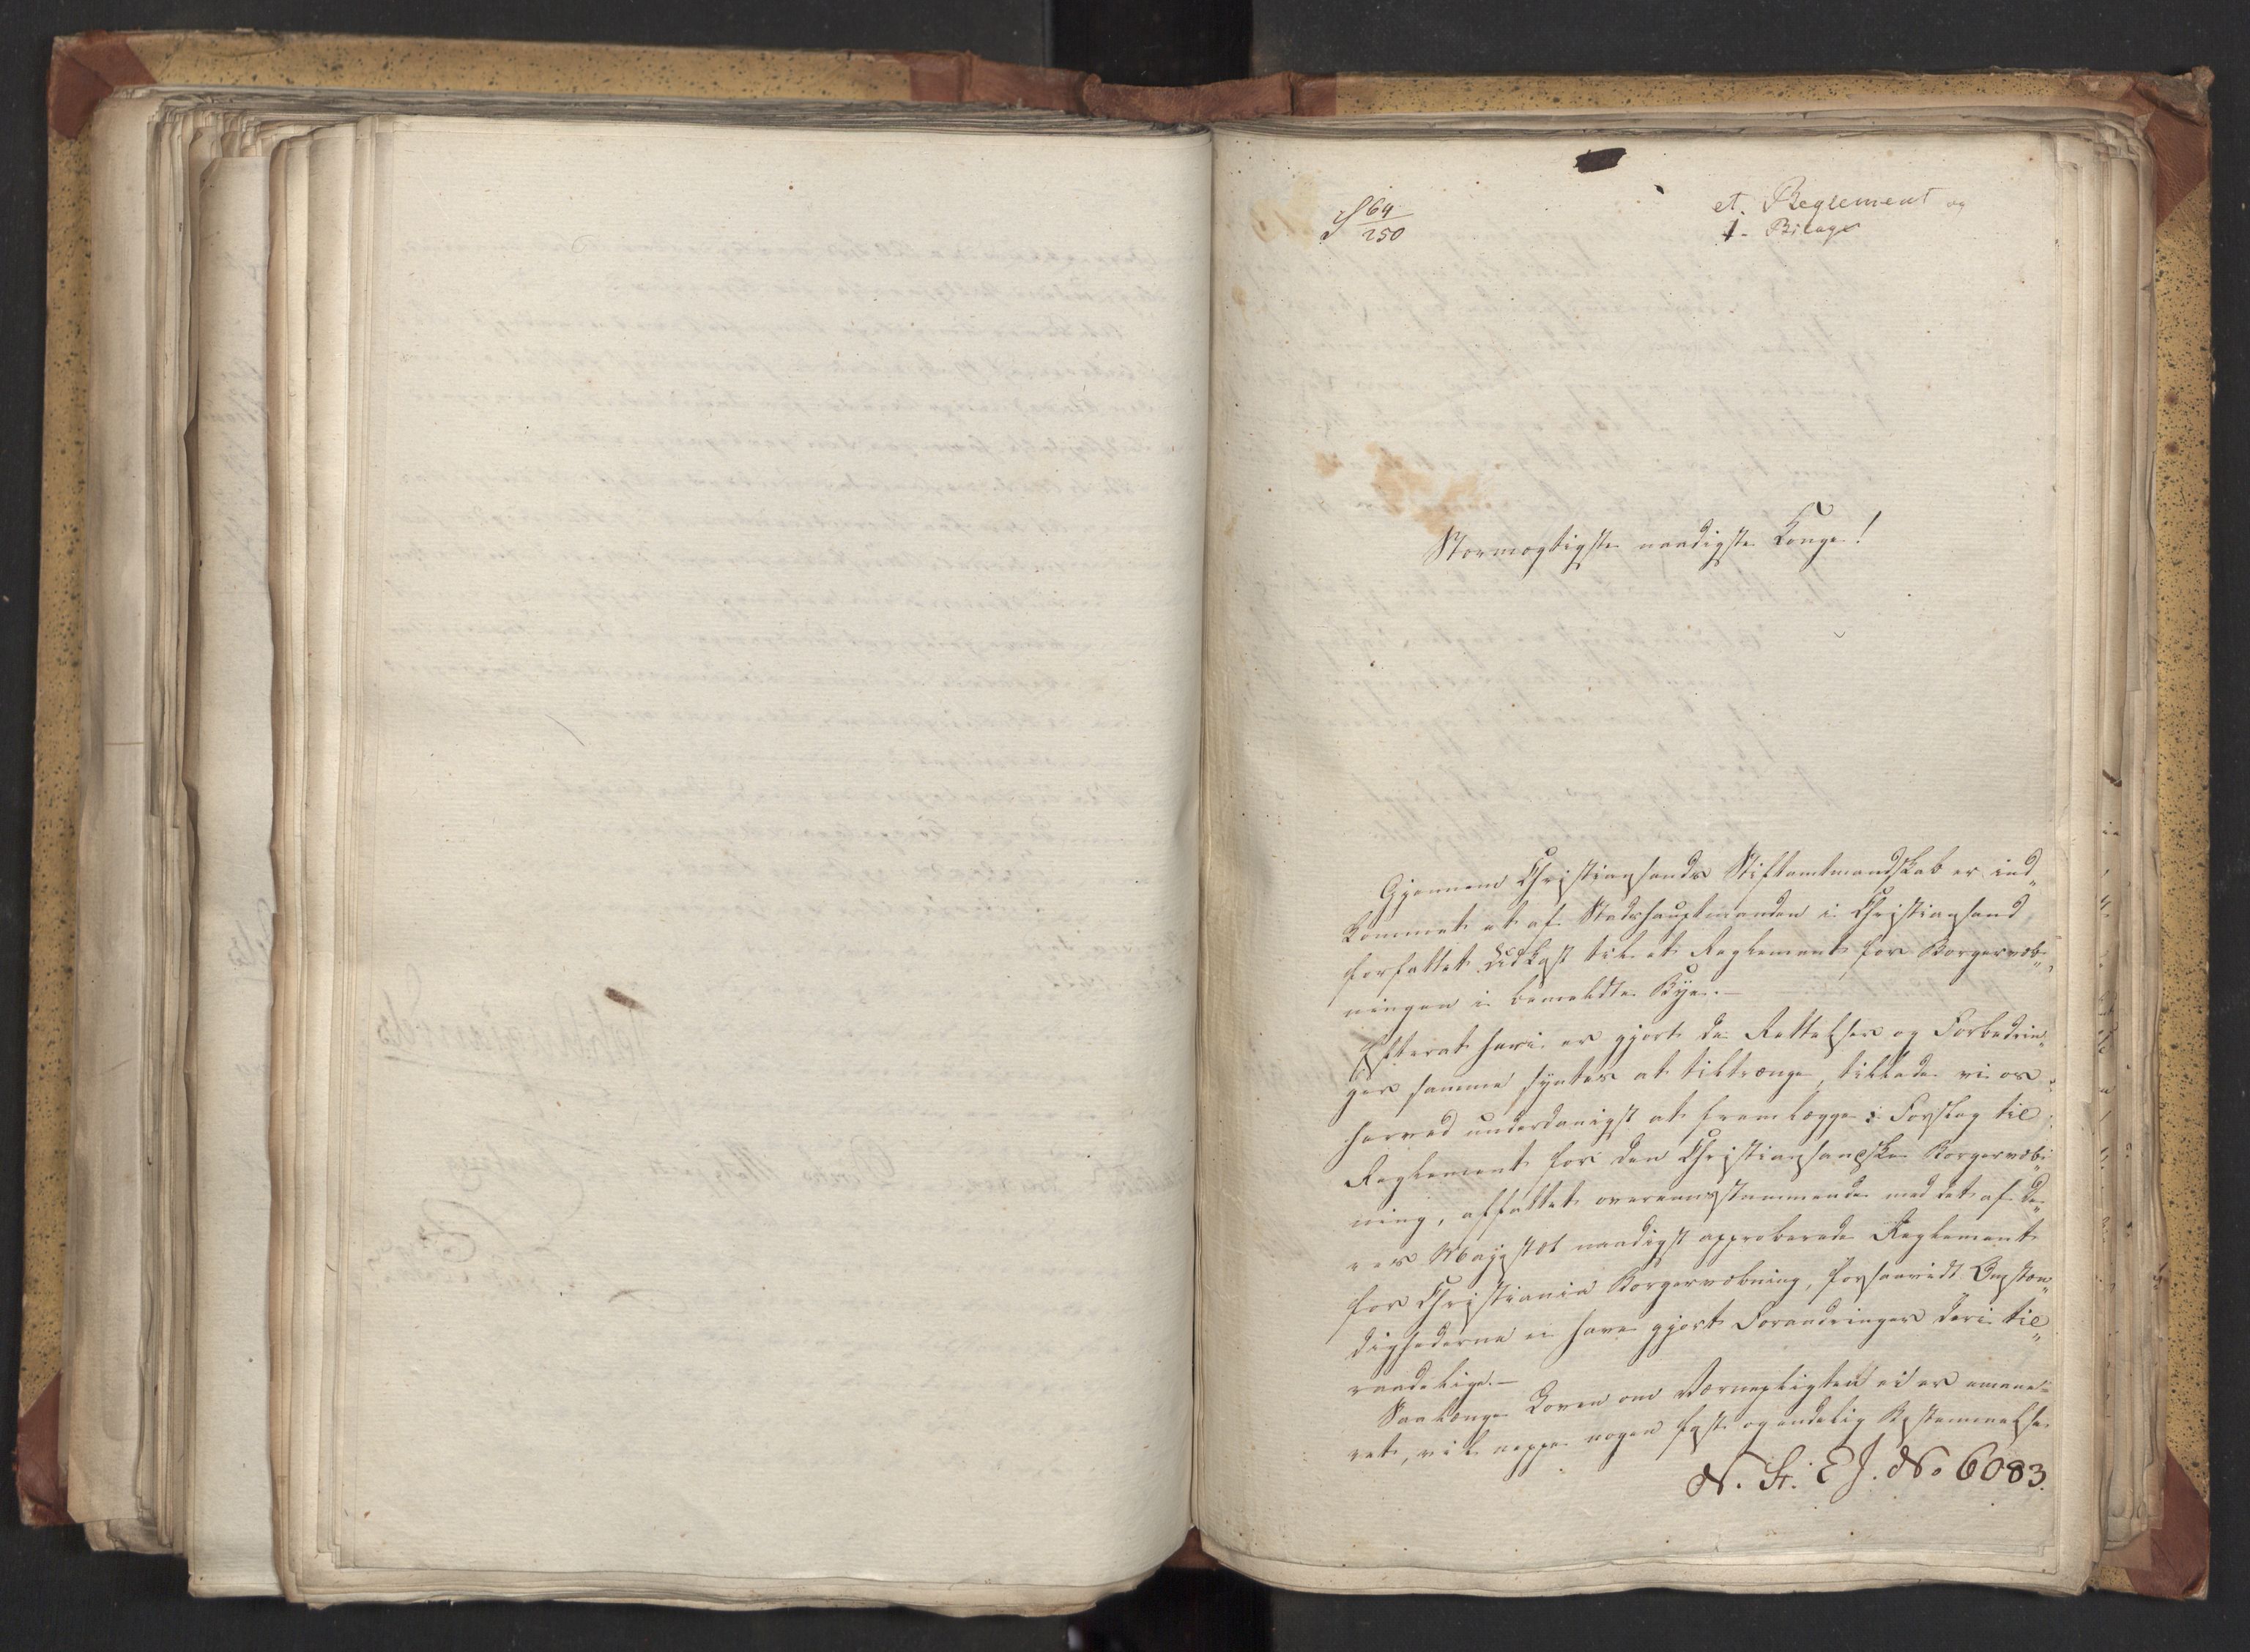 64
250
et. Reglement og
1. Bilage
Stormægtigste naadigste Konge!
Gjennem Christianssands Stiftamtmandskab er ind„
kommet et af Stadshauptmanden i Christianssand
forfattet Udkast til et Reglement for Borgervæb„
ningen i bemeldte Bye.—
Efterat heri er gjort de Rettelser og Forbedrin„
ger samme syntes at tiltrænge, tillade vi os
herved underdanigst at fremlægge: Forslag til
Reglement for den Christianssandske Borgervæb„
ning, affattet overeensstemmende med det af De„
res Majestæt naadigst approberede Reglement
for Christiania Borgervæbning, forsaavidt Omstæn„
dighederne ei have gjort Forandringer deri til„
raadelige.—
Saalænge Loven om Værnepligten ei er emane„
ret, vil neppe nogen fast og endelig Bestemmelse
N. St. E J. No 6083.